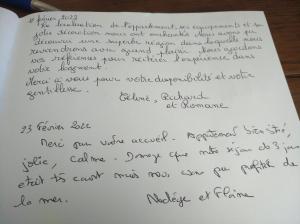 février 2022
La localisation de l'appartement, ses équipements et sa
jolie décoration nous ont enchantés. Nous avons pu
découvrir une superbe région dans laquelle nous
reviendrons avec grand plaisir. Nous
vos références pour réitérer l'expérience dans
votre logement.
Merci à vous pour votre disponibilité et votre
gentillesse.
Céline, Richard
et Romane
23 Février 2022
Merci pour votre accueil. Appartement bien situé,
jolie, calme. Dommage que notre séjour de 3 jours
était très court mais nous avons pu profiter de
la mer.
Nadège et